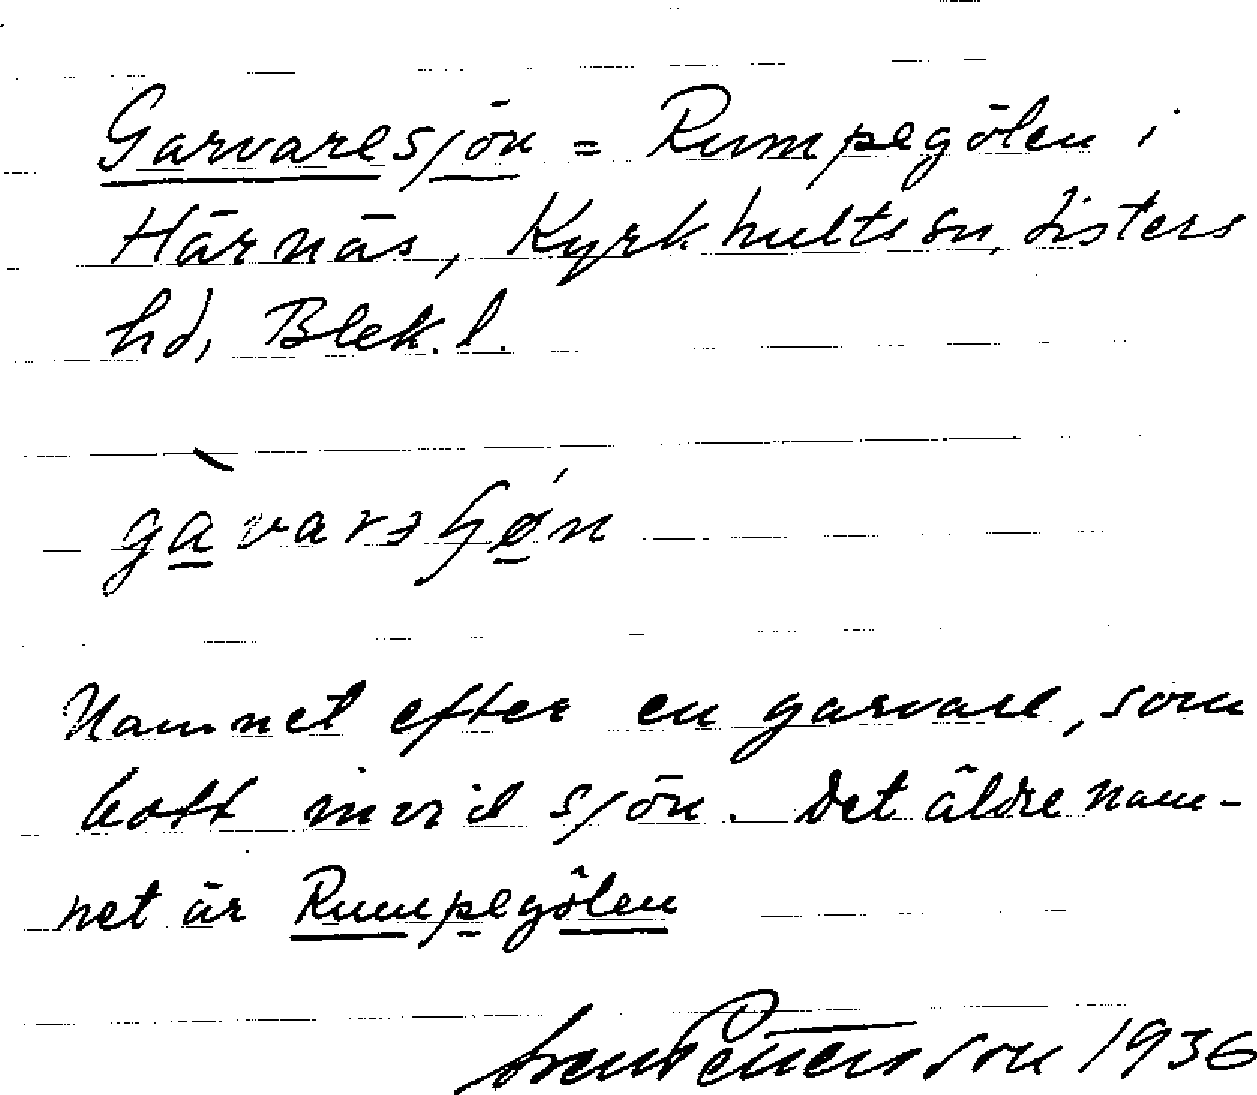 Garvaresjön = Rumpegölen i
Härnäs, Kyrkhults sn, Listers
hd, Blek. l.
gàvarə
Namnet efter en garvare, som
bott invid sjön. Det äldre nam-
net är Rumpegölen
Sven Pettersson 1936